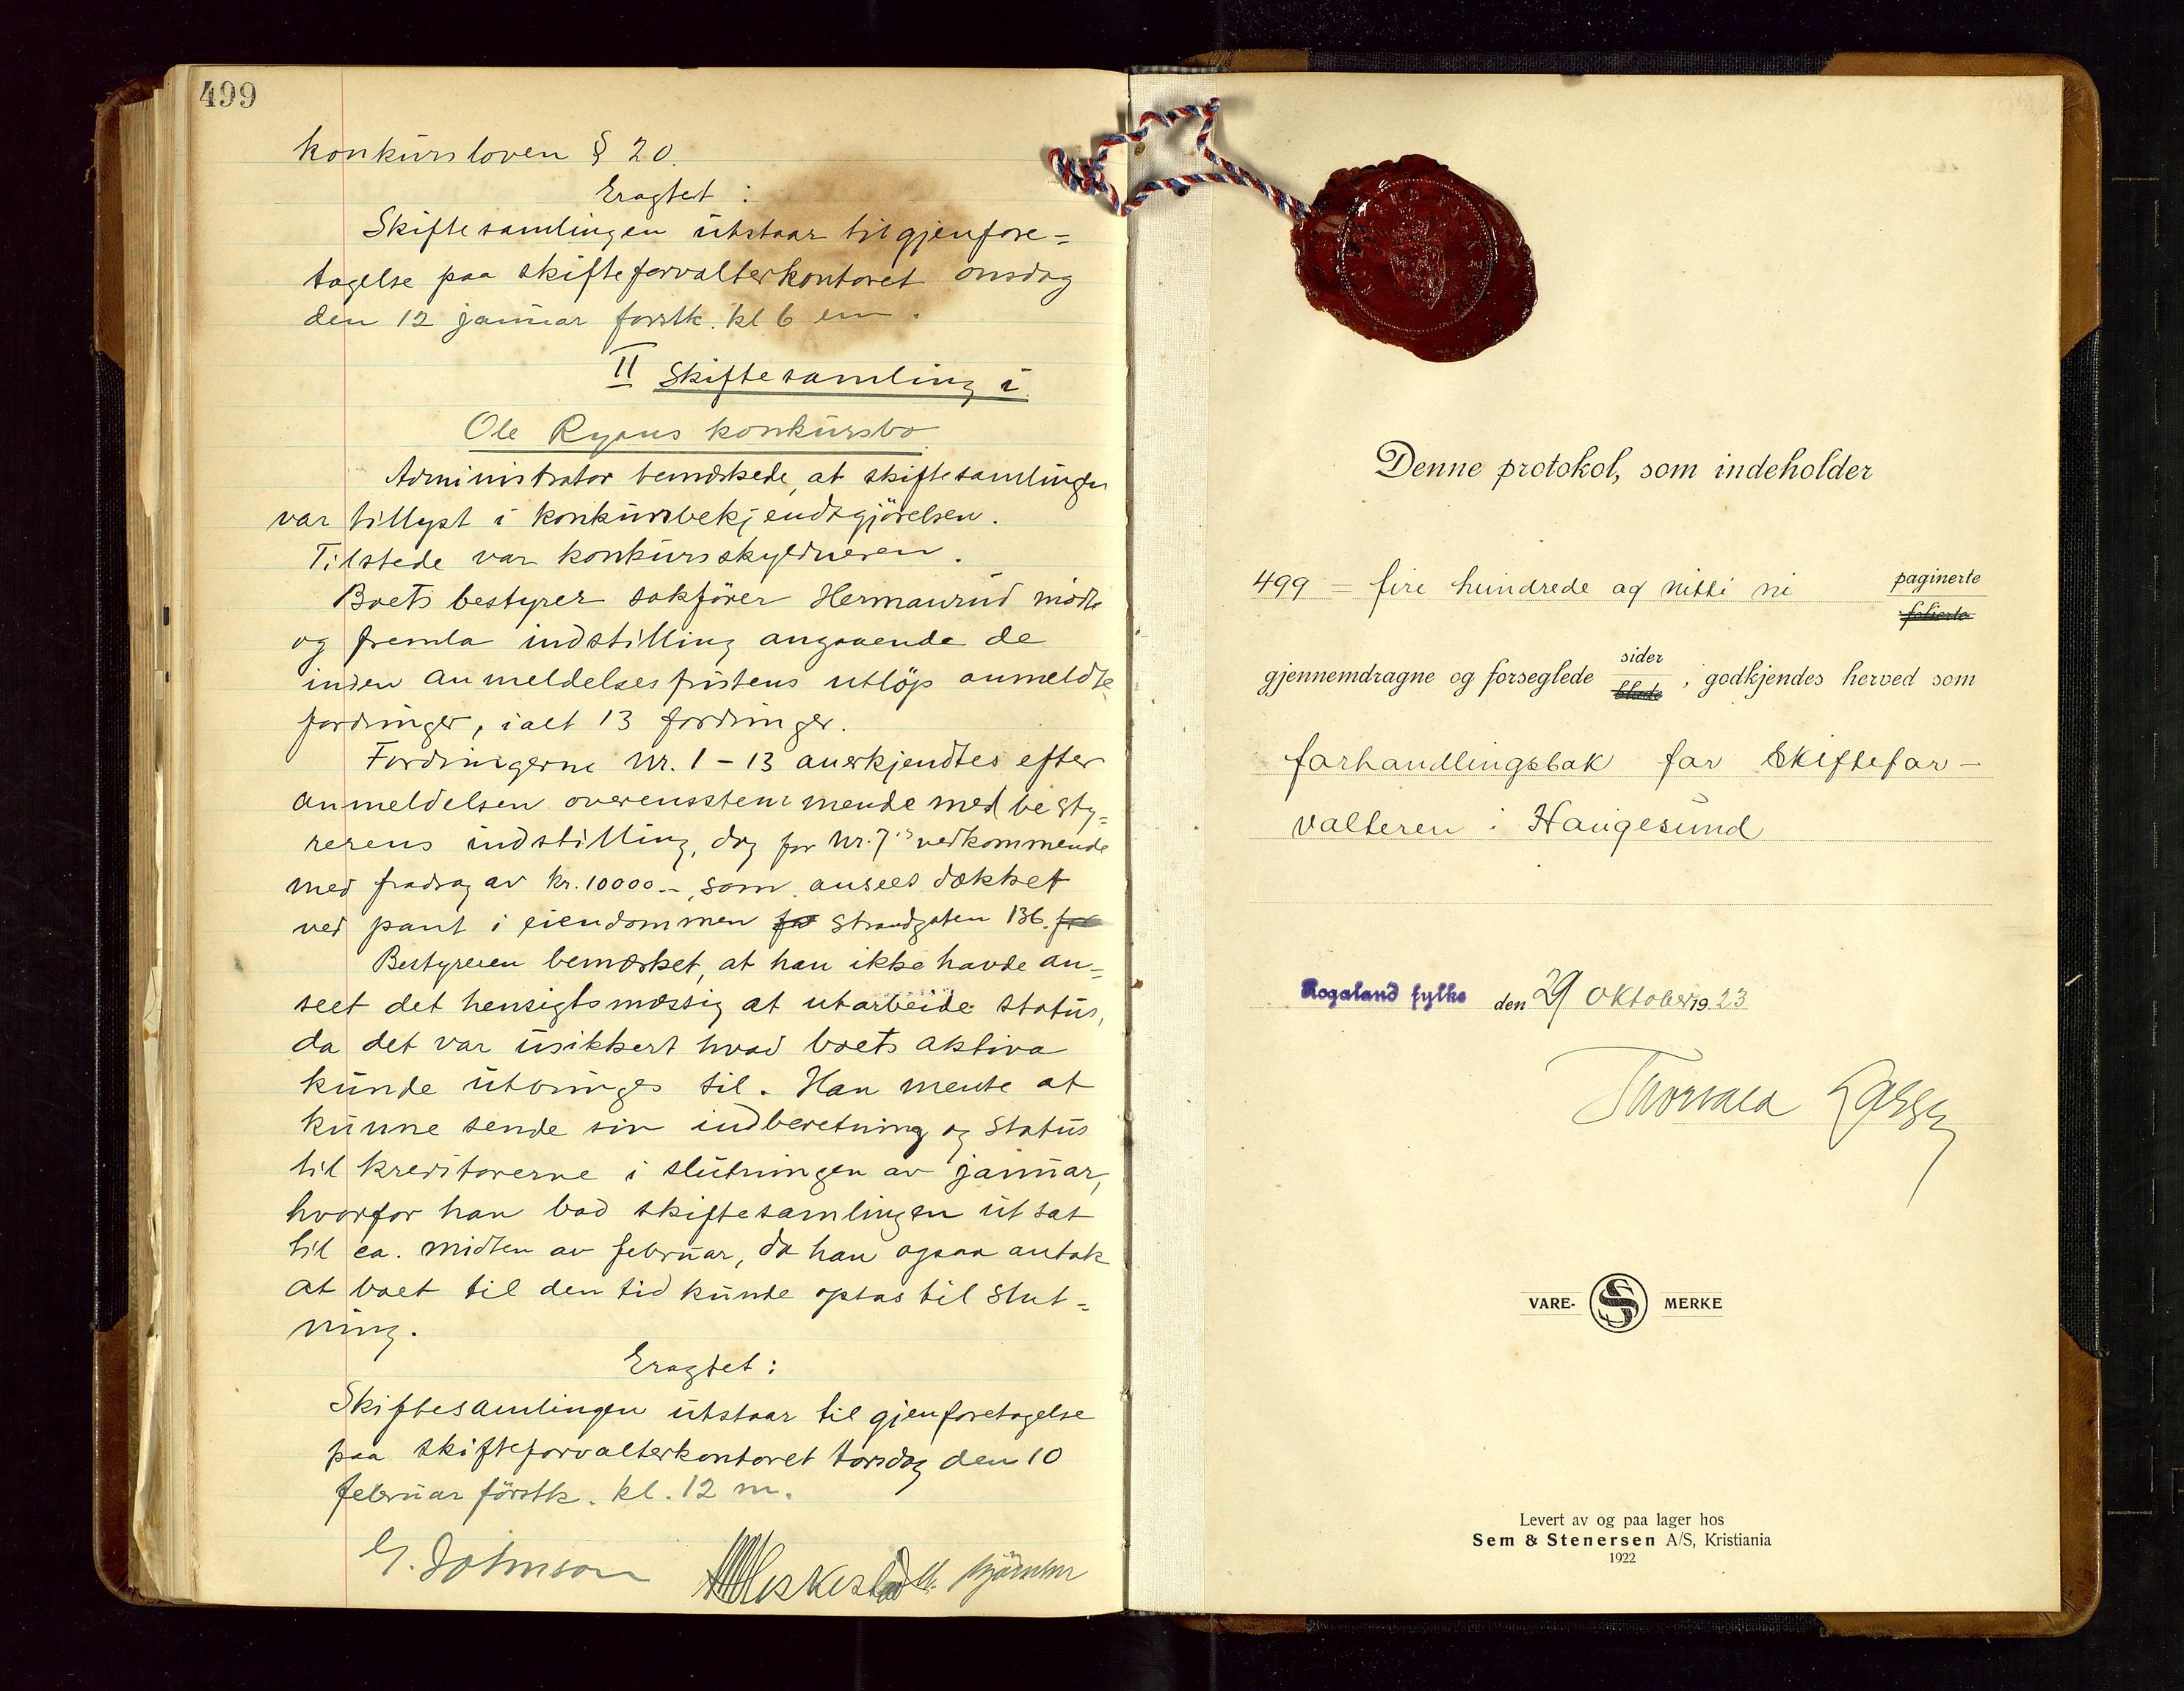 499
konkursloven § 20.
Eragtet :
Skiftesamlingen utstaar til gjenfore=
tagelse paa skifteforvalterkontoret onsdag
den 12 januar førstk. kl 6 em.
II Skiftesamling i
Ole Ryans konkursbo
Administrator bemerkede, at skiftesamlingen
var tillyst i konkursbekjendtgjörelsen.
Tilstede var konkursskyldneren.
Boets bestyrer sakfører Hermanrud mödte
og fremla indstilling angaaende de
inden anmeldelsesfristens utløp anmeldte
fordringer, ialt 13 fordringer.
Fordringerne Nr. 1 - 13 anerkjendtes efter
anmeldelsen overensstemmende med besty=
rerens indstilling, dog for Nr. 7's vedkommende
med fradrag av kr. 10000.- som ansees dækket
ved pant i eiendommen for Strandgaten 136. for
Bestyreren bemærket, at han ikke havde an=
seet det hensigtsmæssig at utarbeide status,
da det var usikkert hvad boets aktiva
kunde utbringes til. Han mente at
kunne sende sin indberetning og status
til kreditorerne i slutningen av januar,
hvorfor han bad skiftesamlingen utsat
til ca. midten av februar, da han ogsaa antok
at boet til den tid kunde optas til slut=
ning.
Eragtet :
Skiftesamlingen utstaar til gjenforetagelse
paa skifteforvalterkontoret torsdag den 10
februar förstk. kl. 12 m.
G. Johnson
Denne protokol, som indeholder
499 = fire hundrede og nitti ni paginerte
folierte
gjennemdragne og forseglede sider
blade , godkjendes herved som
forhandlingsbok for Skiftefor-
valteren i Haugesund
Rogaland fylke den 29 oktober 1923
Thorvald
VARE- S MERKE
Levert av og paa lager hos
Sem & Stenersen A/S, Kristiania
1922